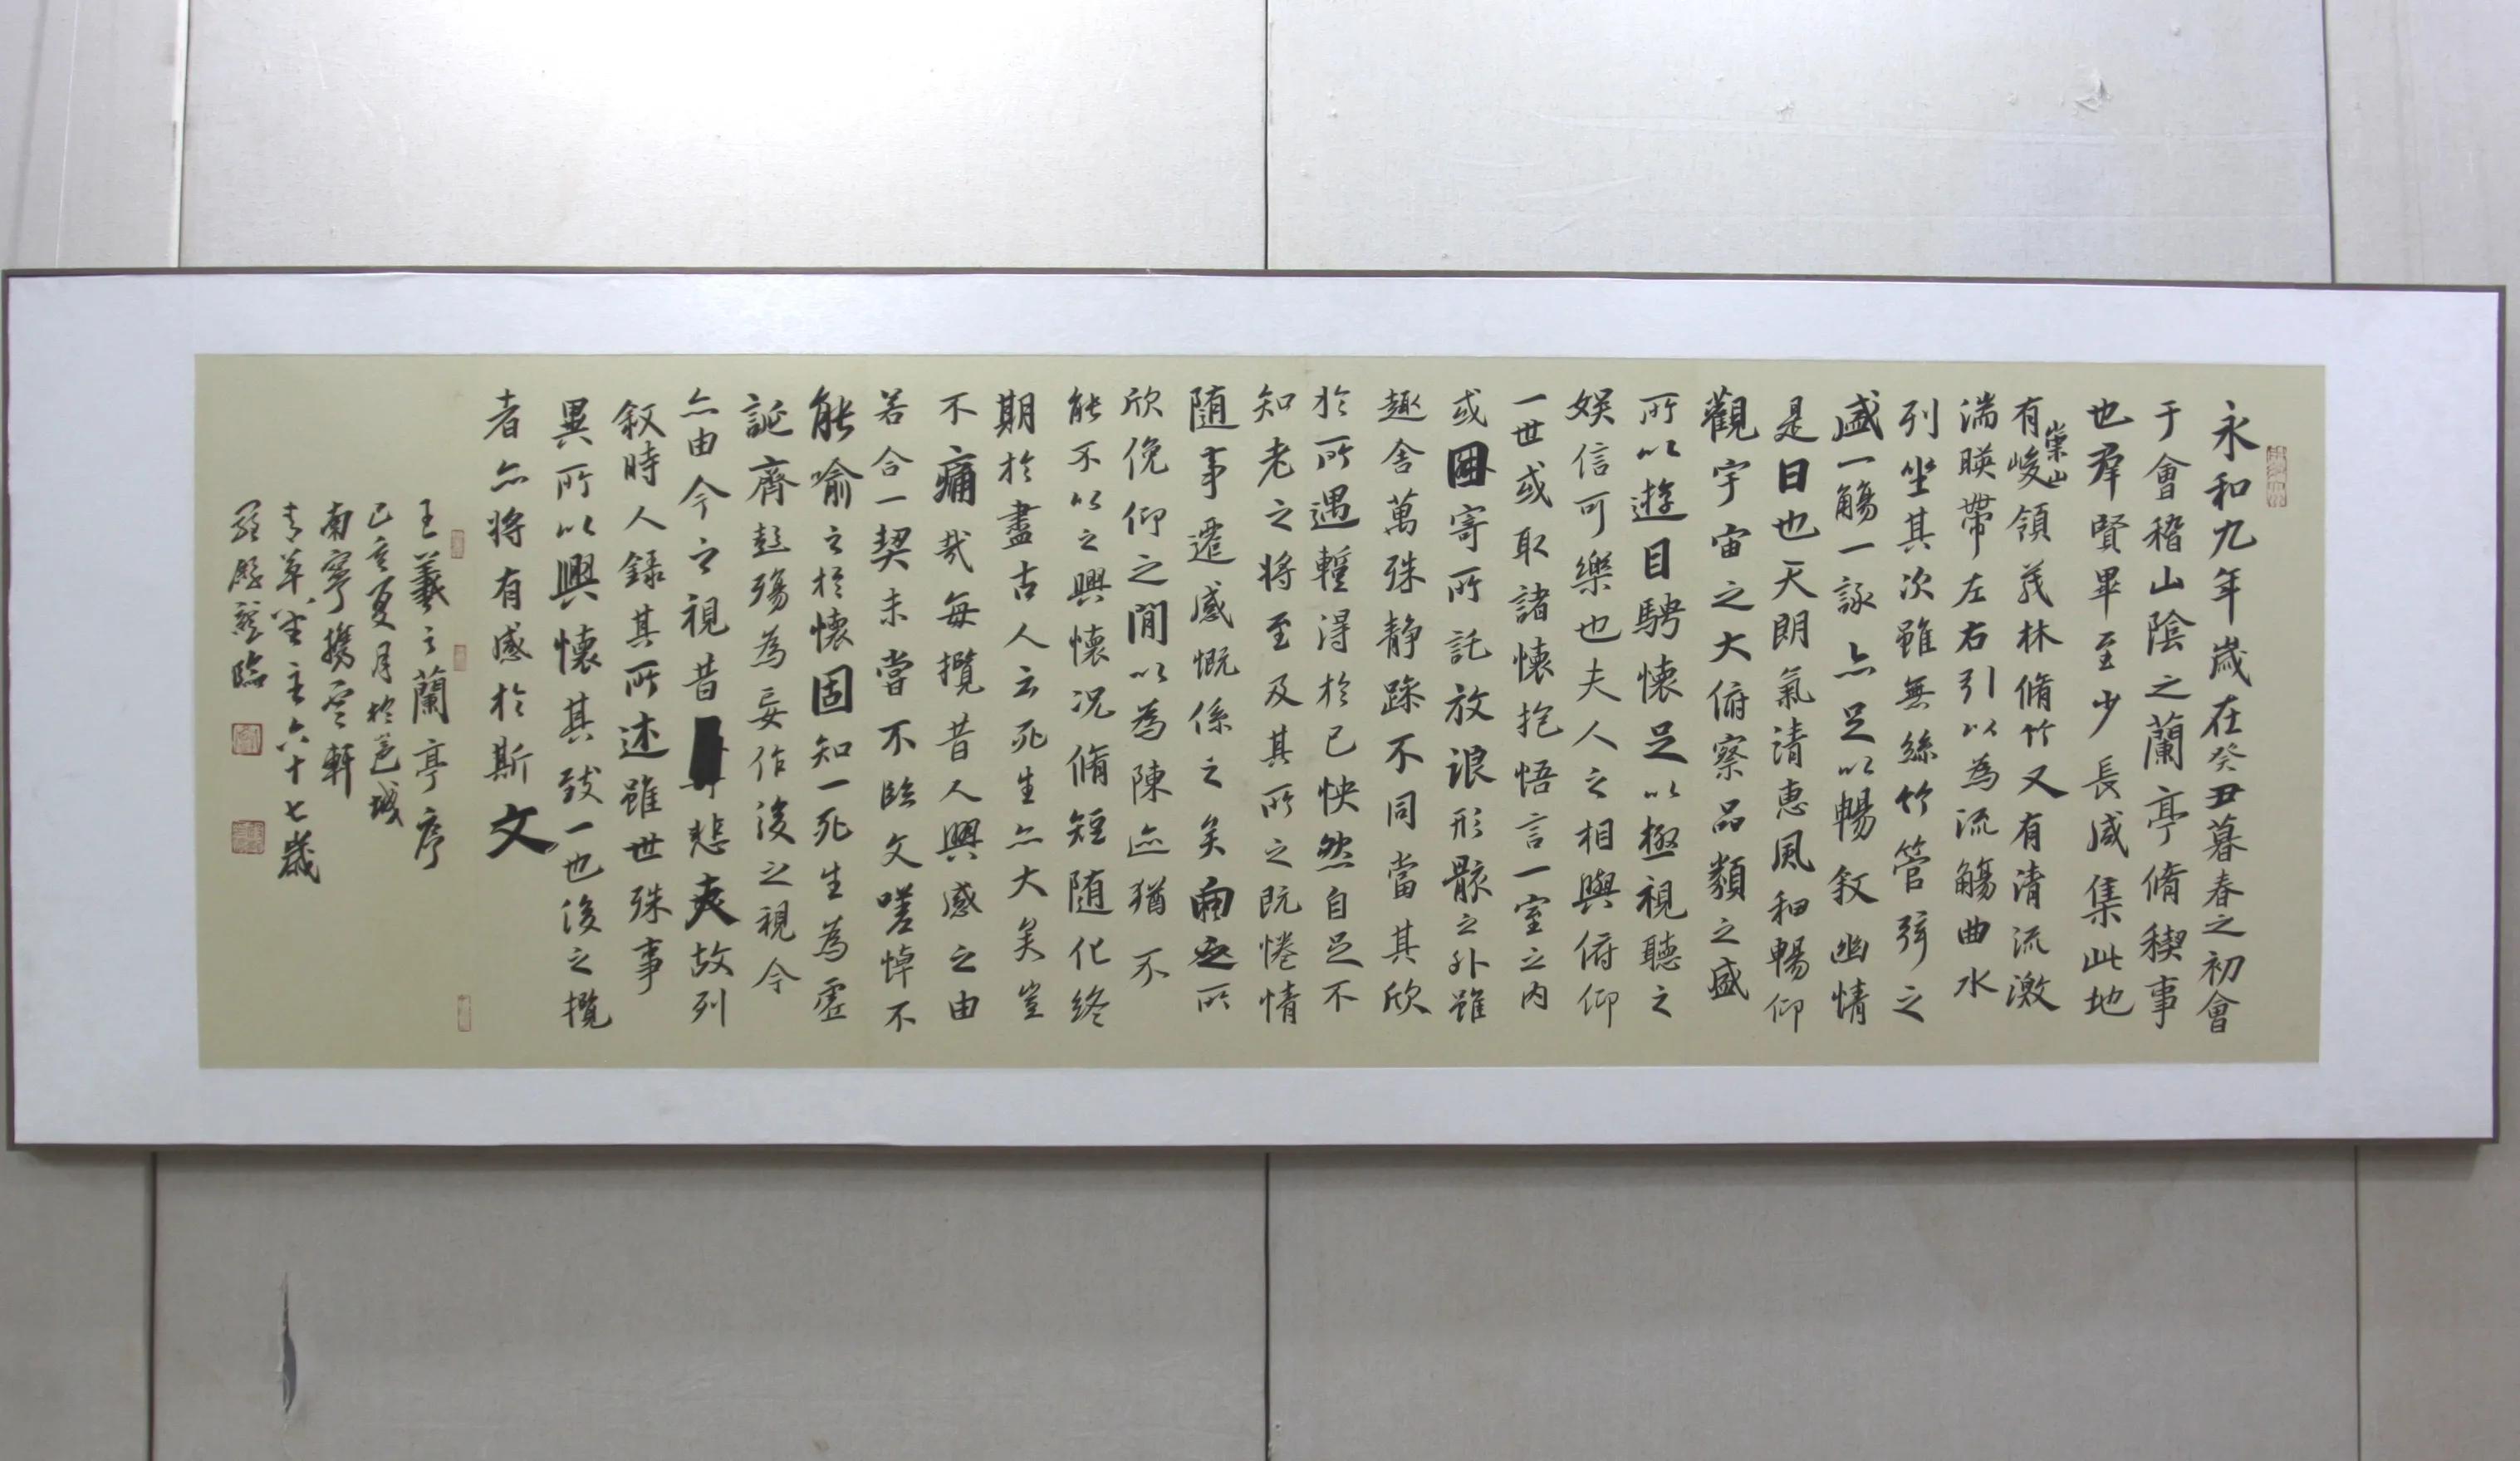 永和九年歲在癸丑暮春之初會
于會稽山陰之蘭亭脩稧事
也羣賢畢至少長咸集此地
有峻領茂林脩竹又有清流激
崇山
湍暎帶左右引以為流觴曲水
列坐其次雖無絲竹管弦之
盛一觴一詠亦足以暢敘幽情
是日也天朗氣清惠風和暢仰
觀宇宙之大俯察品類之盛
所以遊目騁懷足以極視聽之
娛信可樂也夫人之相與俯仰
一世或取諸懷抱悟言一室之內
或因寄所託放浪形骸之外雖
趣舍萬殊靜躁不同當其欣
於所遇蹔得於己怏然自足不
知老之將至及其所之既惓情
隨事遷感慨係之矣向之所
欣俛仰之閒以為陳迹猶不
能不以之興懷況脩短隨化終
期於盡古人云死生亦大矣豈
不痛哉每攬昔人興感之由
若合一契未嘗不臨文嗟悼不
能喻之於懷固知一死生為虛
誕齊彭殤為妄作後之視今
亦由今之視昔悲夫故列
敘時人錄其所述雖世殊事
異所以興懷其致一也後之攬
者亦將有感於斯文
王羲之蘭亭序
己亥夏月於邕城
南寧攜雲軒
青草堂主六十七歲
臨